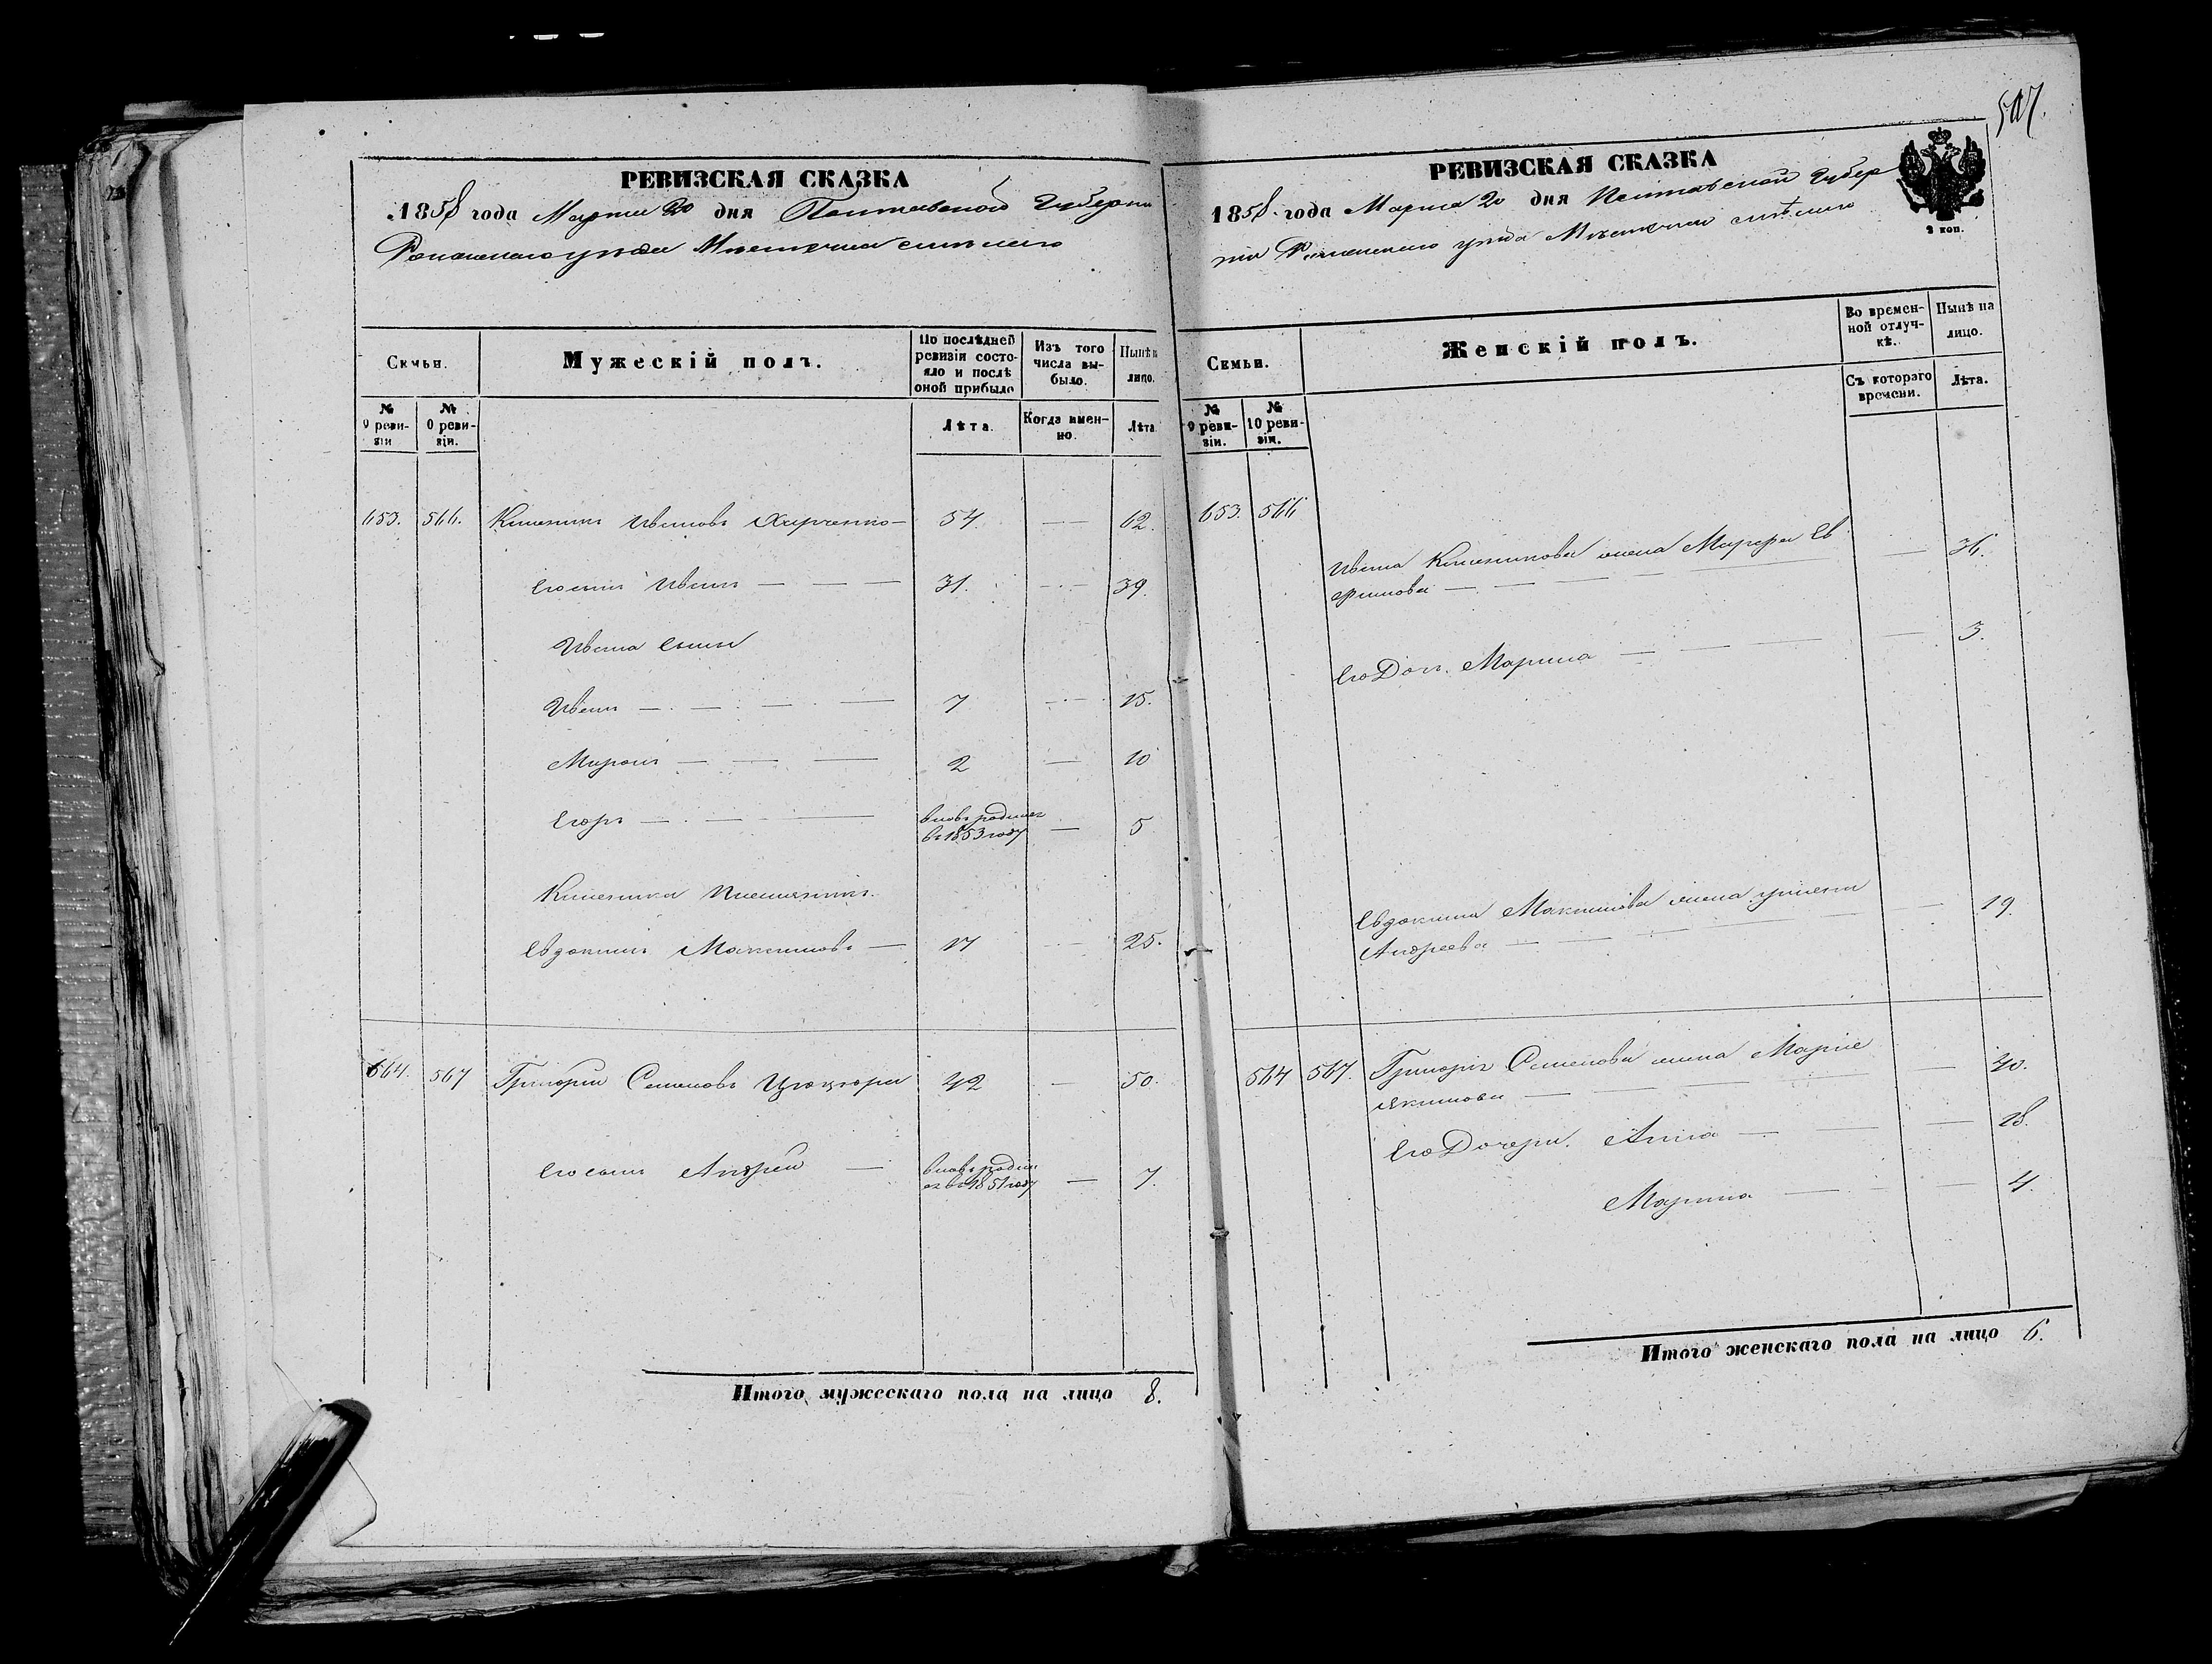 РЕВИЗСКАЯ СКАЗКА
1858 года Марта 20 дня Полтавской Губерніи
Роменскаго уѣзда Мѣстечка Смѣлаго
Семьи.
Мужескій полъ.
По послѣдней ревизіи состояло и послѣ оной прибыло
Изъ того числа выбыло.
Нынѣ на лицо.
№ 9 ревизіи
№ 10 ревизіи.
Лѣта.
Когда именно.
Лѣта
653. 566. Клименть Ивановъ Харченко — 54 — 62.
Его сынъ Иванъ — — — 31. — 39.
Ивана сыны
Иванъ — — — 7 — 15.
Миронъ — — — 2 — 10
Егоръ — — — вновь родился въ 1853 году — 5
Племянникъ
Евдокимъ Максимовъ — 17 — 25.
564. 567 Григорій Семеновъ Цюцюра 42 — 50.
Его сынъ Андрей — вновь родился въ 1851 году — 7.
Итого мужескаго пола на лицо 8.
517.
РЕВИЗСКАЯ СКАЗКА
1858 года Марта 20 дня Полтавской Губер
ніи Роменскаго уѣзда Мѣстечка Смѣлаго
2 коп.
Семьи.
Женскій полъ.
Во временной отлучкѣ.
Нынѣ на лицо.
№ 9 ревизіи.
№ 10 ревизіи.
Съ котораго времени.
Лѣта.
653. 566
Ивана жена Марфа Ев — 36.
фимова — — —
Его Дочь Марина — — — — 3.
Евдокима Максимова жена — 19.
Андреева — — —
564 567. Григорія Семенова жена Марія — 40.
Якимова —
Его Дочери. Анна — — — 18.
Марина — — — 4.
Итого женскаго пола на лицо 6.